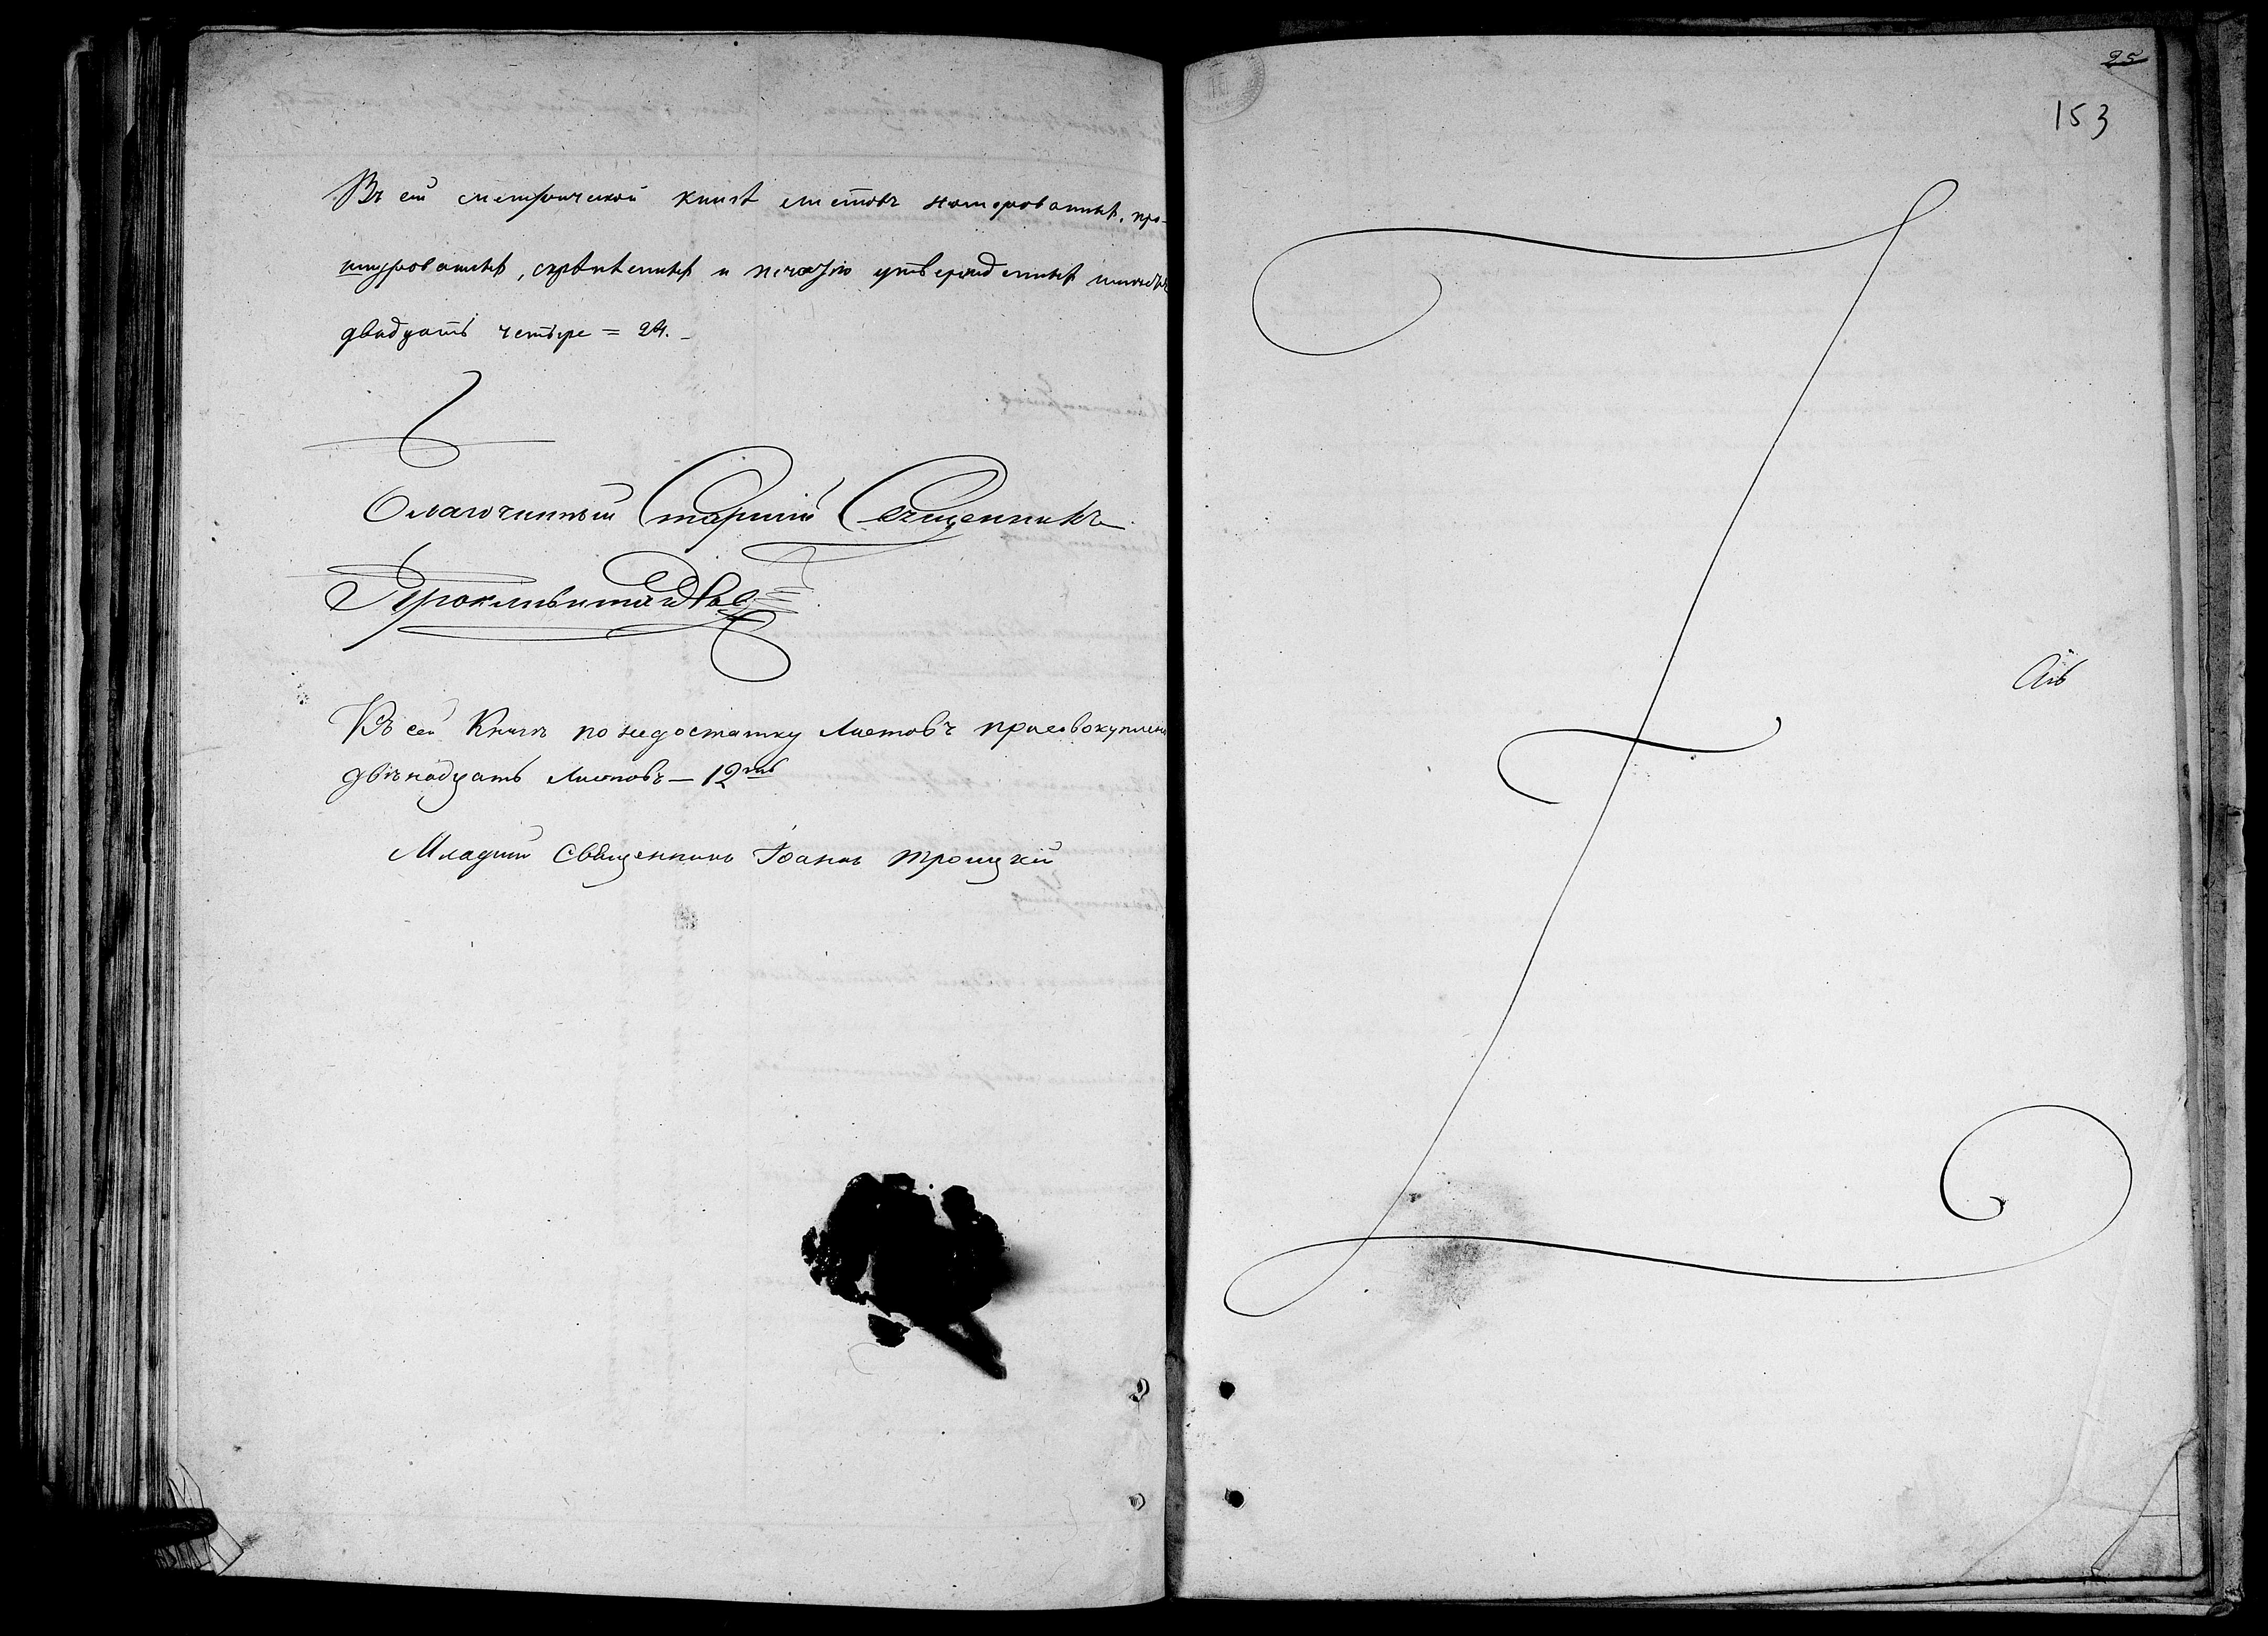 Въ сей метрической книгѣ листовъ номерованныхъ, про-
шнурованныхъ, скрѣпленныхъ и печатью утвержденныхъ
двадцать четыре = 24. –
Благочинный Старшій Священникъ
Въ сей Книгѣ по недостатку Листовъ присовокуплено
двѣнадцать Листовъ – 12ть
Младшій Священникъ Іоаннъ Троицкій
25
153